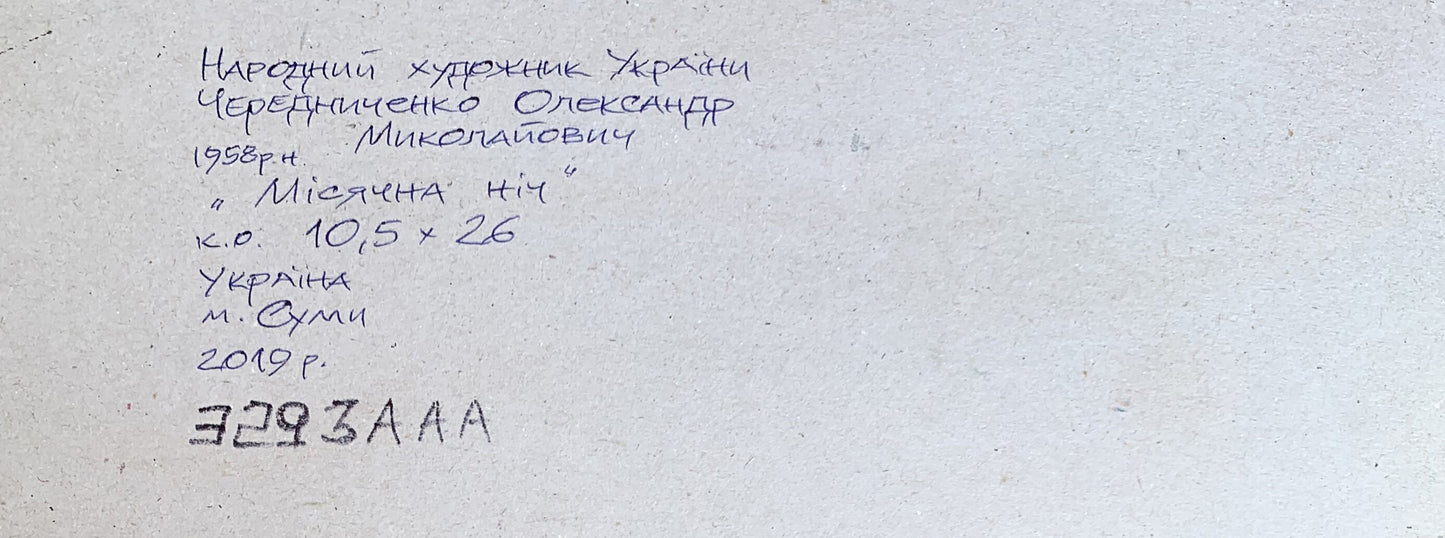 Народний художник України
Чередниченко Олександр
Миколайович
1958р.н.
„ Місячна ніч “
к.о. 10,5 x 26
Україна
м. Суми
2019 р.
3293AAA